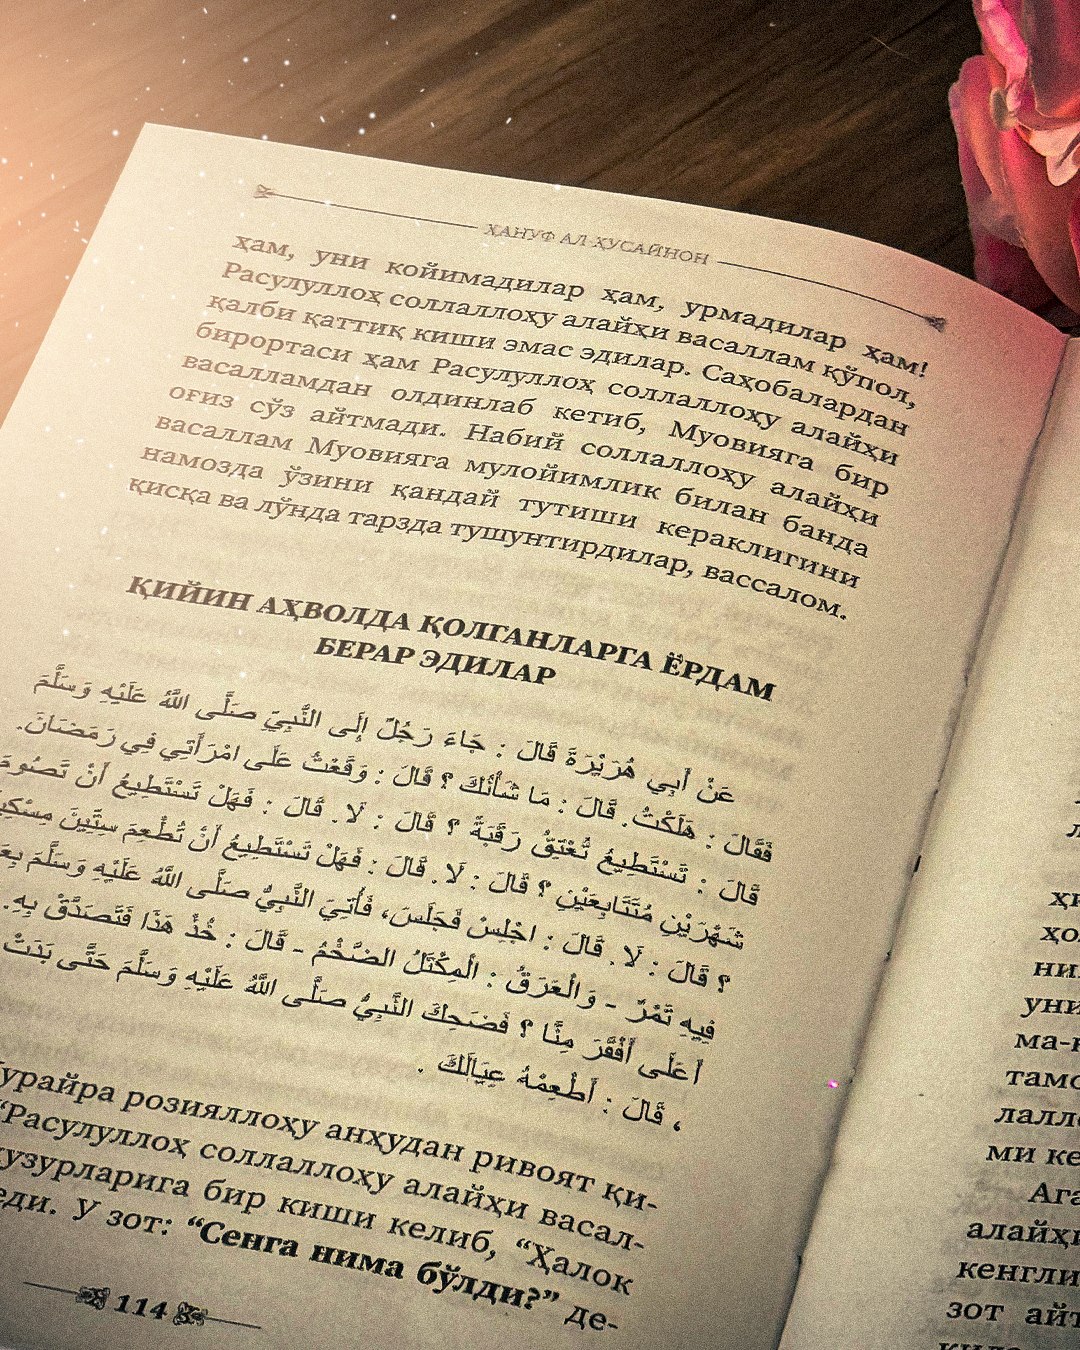 ҲАНУФ АЛ-ҲУСАЙНОН
ҳам, уни койимадилар ҳам, урмадилар ҳам!
Расулуллоҳ соллаллоҳу алайҳи васаллам қўпол,
қалби қаттиқ киши эмас эдилар. Саҳобалардан
бирортаси ҳам Расулуллоҳ соллаллоҳу алайҳи
васалламдан олдинлаб кетиб, Муовияга бир
оғиз сўз айтмади. Набий соллаллоҳу алайҳи
васаллам Муовияга мулойимлик билан банда
намозда ўзини қандай тутиши кераклигини
қисқа ва лўнда тарзда тушунтирдилар, вассалом.
ҚИЙИН АҲВОЛДА ҚОЛГАНЛАРГА ЁРДАМ
БЕРАР ЭДИЛАР
عَنْ أَبِي هُرَيْرَةَ قَالَ : جَاءَ رَجُلٌ إِلَى النَّبِيِّ صَلَّى اللَّهُ عَلَيْهِ وَسَلَّمَ
فَقَالَ : هَلَكْتُ. قَالَ : مَا شَأْنُكَ ؟ قَالَ : وَقَعْتُ عَلَى امْرَأَتِي فِي رَمَضَانَ.
قَالَ : تَسْتَطِيعُ تُعْتِقُ رَقَبَةً ؟ قَالَ : لَا. قَالَ : فَهَلْ تَسْتَطِيعُ أَنْ تَصُومَ
شَهْرَيْنِ مُتَتَابِعَيْنِ ؟ قَالَ : لَا. قَالَ : فَهَلْ تَسْتَطِيعُ أَنْ تُطْعِمَ سِتِّينَ
؟ قَالَ : لَا. قَالَ : اجْلِسْ فَجَلَسَ، فَأُتِيَ النَّبِيُّ صَلَّى اللَّهُ عَلَيْهِ وَسَلَّمَ
فِيهِ تَمْرٌ - وَالْعَرَقُ : الْمِكْتَلُ الضَّخْمُ - قَالَ : خُذْ هَذَا فَتَصَدَّقْ بِهِ.
أَعَلَى أَفْقَرَ مِنَّا ؟ فَضَحِكَ النَّبِيُّ صَلَّى اللَّهُ عَلَيْهِ وَسَلَّمَ حَتَّى بَدَتْ
، قَالَ : أَطْعِمْهُ عِيَالَكَ .
урайра розияллоҳу анҳудан ривоят қи-
“Расулуллоҳ соллаллоҳу алайҳи васал-
узурларига бир киши келиб, “Ҳалок
еди. У зот: “Сенга нима бўлди?” де-
114
уни
ма-
тамо
лалло
ми ке
Ага
алайҳи
кенгли
зот айт